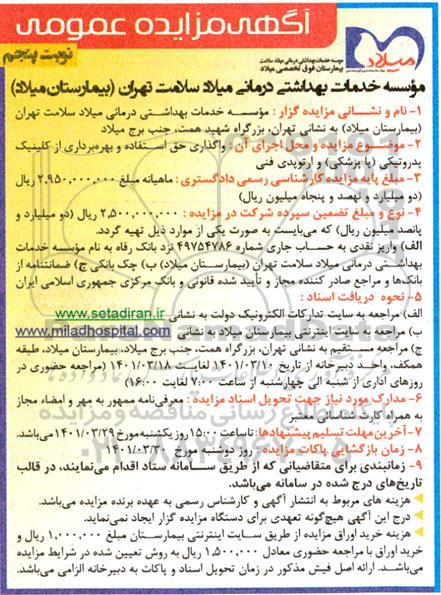 آگهی مزایده عمومی
نوبت پنجم
میلاد
موسسه خدمات بهداشتی درمانی میلاد سلامت
بیمارستان فوق تخصصی میلاد
مؤسسه خدمات بهداشتی درمانی میلاد سلامت تهران (بیمارستان میلاد)
۱- نام و نشانی مزایده گزار : مؤسسه خدمات بهداشتی درمانی میلاد سلامت تهران
(بیمارستان میلاد) به نشانی تهران، بزرگراه شهید همت، جنب برج میلاد
۲- موضوع مزایده و محل اجرای آن : واگذاری حق استفاده و بهره‌برداری از کلینیک
پدروتیکی (پا پزشکی) و ارتوپدی فنی
۳- مبلغ پایه مزایده کارشناسی رسمی دادگستری : ماهیانه مبلغ ۲,۹۵۰,۰۰۰,۰۰۰ ریال
(دو میلیارد و نهصد و پنجاه میلیون ریال)
۴- نوع و مبلغ تضمین سپرده شرکت در مزایده : ۲,۵۰۰,۰۰۰,۰۰۰ ریال (دو میلیارد و
پانصد میلیون ریال) که می‌بایست به صورت یکی از موارد ذیل تهیه گردد.
الف) واریز نقدی به حساب جاری شماره ۴۹۷۵۴۷۸۶ نزد بانک رفاه به نام مؤسسه خدمات
بهداشتی درمانی میلاد سلامت تهران (بیمارستان میلاد) ب) چک بانکی ج) ضمانتنامه از
بانک‌ها و مراجع صادر کننده مجاز و تأیید شده قانونی و بانک مرکزی جمهوری اسلامی ایران
۵- نحوه دریافت اسناد :
الف) مراجعه به سایت تدارکات الکترونیک دولت به نشانی www.setadiran.ir
ب) مراجعه به سایت اینترنتی بیمارستان میلاد به نشانی www.miladhospital.com
ج) مراجعه مستقیم به نشانی تهران، بزرگراه همت، جنب برج میلاد، بیمارستان میلاد، طبقه
همکف، واحد دبیرخانه از تاریخ ۱۴۰۱/۰۳/۱۰ لغایت ۱۴۰۱/۰۳/۱۸ (مراجعه حضوری در
روزهای اداری از شنبه الی چهارشنبه از ساعت ۷:۰۰ لغایت ۱۶:۰۰)
۶- مدارک مورد نیاز جهت تحویل اسناد مزایده : معرفی‌نامه ممهور به مهر و امضاء مجاز
به همراه کارت شناسائی معتبر
۷- آخرین مهلت تسلیم پیشنهادها : تا ساعت ۱۵:۰۰ روز یکشنبه مورخ ۱۴۰۱/۰۳/۲۹ می‌باشد.
۸- زمان بازگشایی پاکات مزایده : روز دوشنبه مورخ ۱۴۰۱/۰۳/۳۰
۹- زمانبندی برای متقاضیانی که از طریق سامانه ستاد اقدام می‌نمایند، در قالب
تاریخ‌های درج شده در سامانه می‌باشد.
هزینه های مربوط به انتشار آگهی و کارشناس رسمی به عهده برنده مزایده می‌باشد.
درج این آگهی هیچ‌گونه تعهدی برای دستگاه مزایده گزار ایجاد نمی‌نماید.
هزینه خرید اوراق مزایده از طریق سایت اینترنتی بیمارستان مبلغ ۱,۰۰۰,۰۰۰ ریال و
خرید اوراق با مراجعه حضوری معادل ۱,۵۰۰,۰۰۰ ریال به روش تعیین شده در شرایط مزایده
می‌باشد. ارائه اصل فیش مذکور در زمان تحویل اسناد و پاکات به دبیرخانه الزامی می‌باشد.